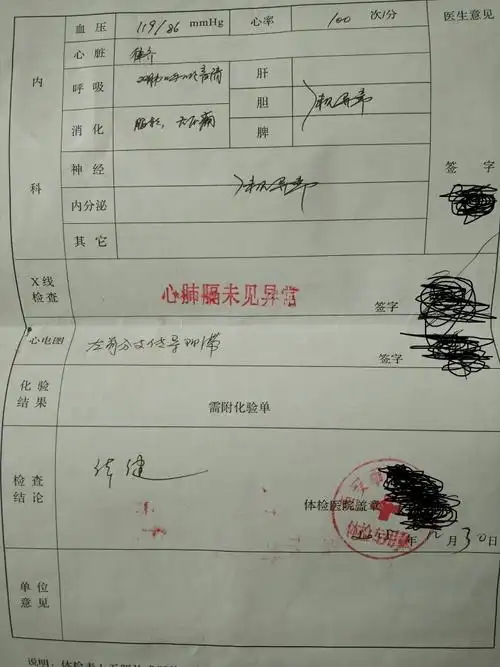 血压 119/86 mmHg 心率 100 次/分 医生意见
内科
心脏 律齐
呼吸 双肺呼吸音清 肝
胆 未见异常
消化 腹软，无压痛 脾
神经
未见异常
内分泌
签字
其它
X线检查 心肺膈未见异常 签字
心电图 左前分支传导阻滞 签字
化验结果 需附化验单
检查结论
体检医院盖章
年 月 30 日
单位意见